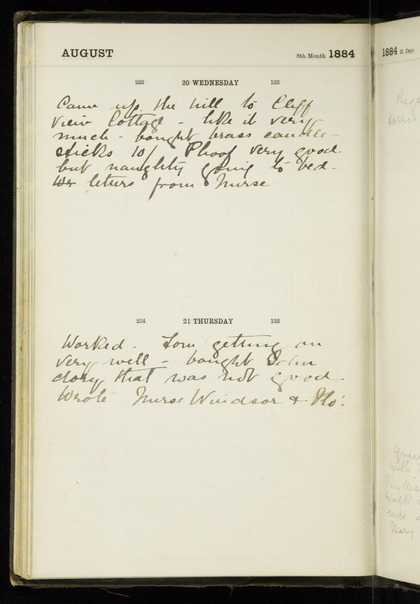 AUGUST 8th Month 1884
233 20 WEDNESDAY 133
Came up the hill to Cliff
View Cottage - like it very
much - bought brass candle-
sticks 10/. very good
but naughty going to bed.
letters from Nurse
234 21 THURSDAY 132
Worked. getting on
very well - bought
that was not good.
Wrote Nurse Windsor & Flo.
1884 31 Days